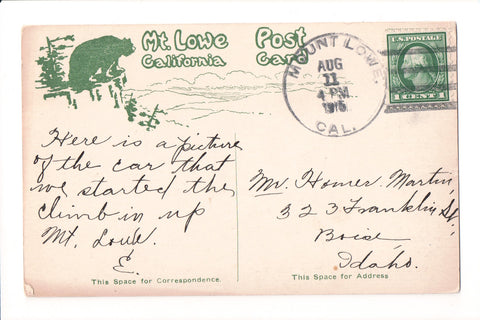 Mt. Lowe Post
California Card
MOUNT LOWE,
AUG
11
4 PM
1915
CAL.
U.S. POSTAGE
1 CENT 1
Here is a picture
of the car that
we started the
climb in up
Mt. Lowe.
E.
Mr. Homer Martin,
323 Franklin St.,
Boise,
Idaho.
This Space for Correspondence.
This Space for Address